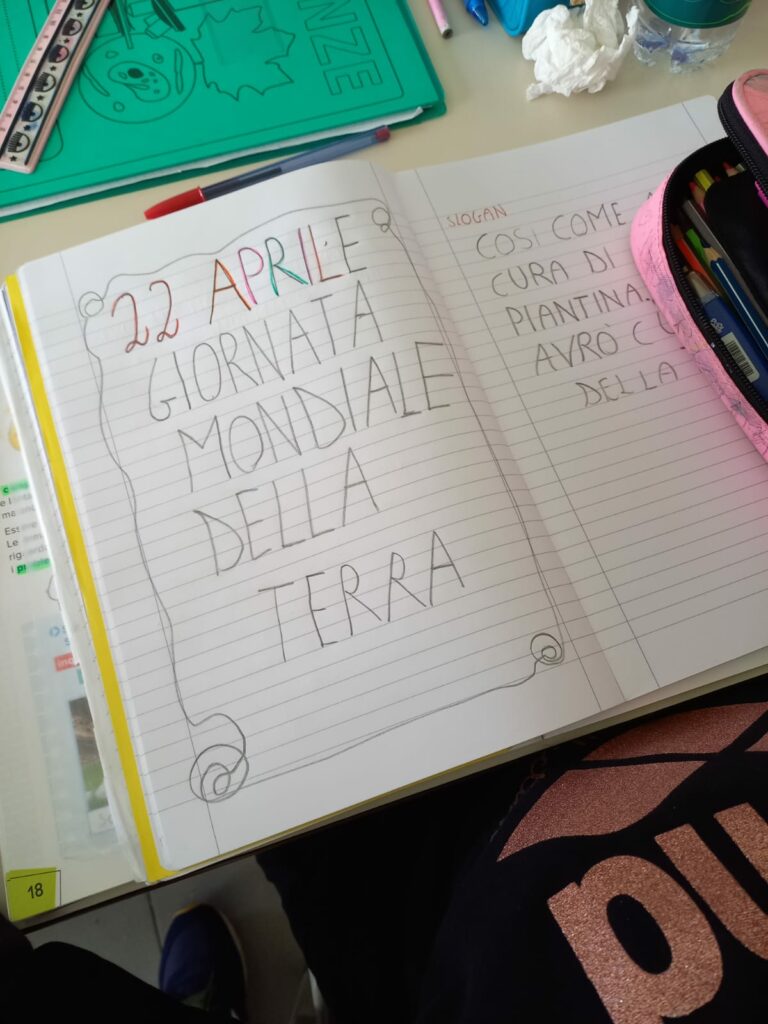 NZE
22 APRILE
GIORNATA
MONDIALE
DELLA
TERRA
SLOGAN
COSÌ COME
CURA DI
PIANTINA.
AVRÒ C
DELLA
18
pu